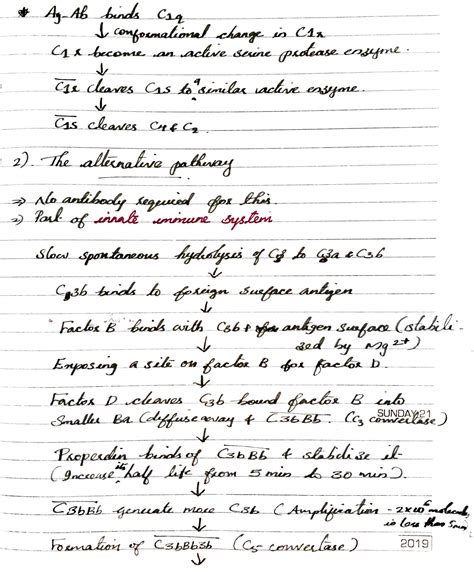 * Ag-Ab binds C1q
↓ conformational change in C1r
C1r become an active serine protease enzyme.
↓
C1r cleaves C1s to a similar active enzyme.
↓
C1s cleaves C4 & C2
2). The alternative pathway
⇒ No antibody required for this.
⇒ Part of innate immune system
Slow spontaneous hydrolysis of C3 to C3a & C3b
↓
C3b binds to foreign surface antigen
↓
Factor B binds with C3b + antigen surface (stabili-
sed by Mg2+)
↓
Exposing a site on factor B for factor D.
↓
Factor D cleaves C3b bound factor B into
SUNDAY 21
Smaller Ba (diffuse away & C3bBb. (C3 convertase)
↓
Properdin binds of C3bBb & stabilise it
(Increase its half life from 5 min to 30 min).
↓
C3bBb generate more C3b (Amplification - 2x10^6 molecules
in less than 5min
↓
Formation of C3bBb3b (C5-convertase)
2019
↓